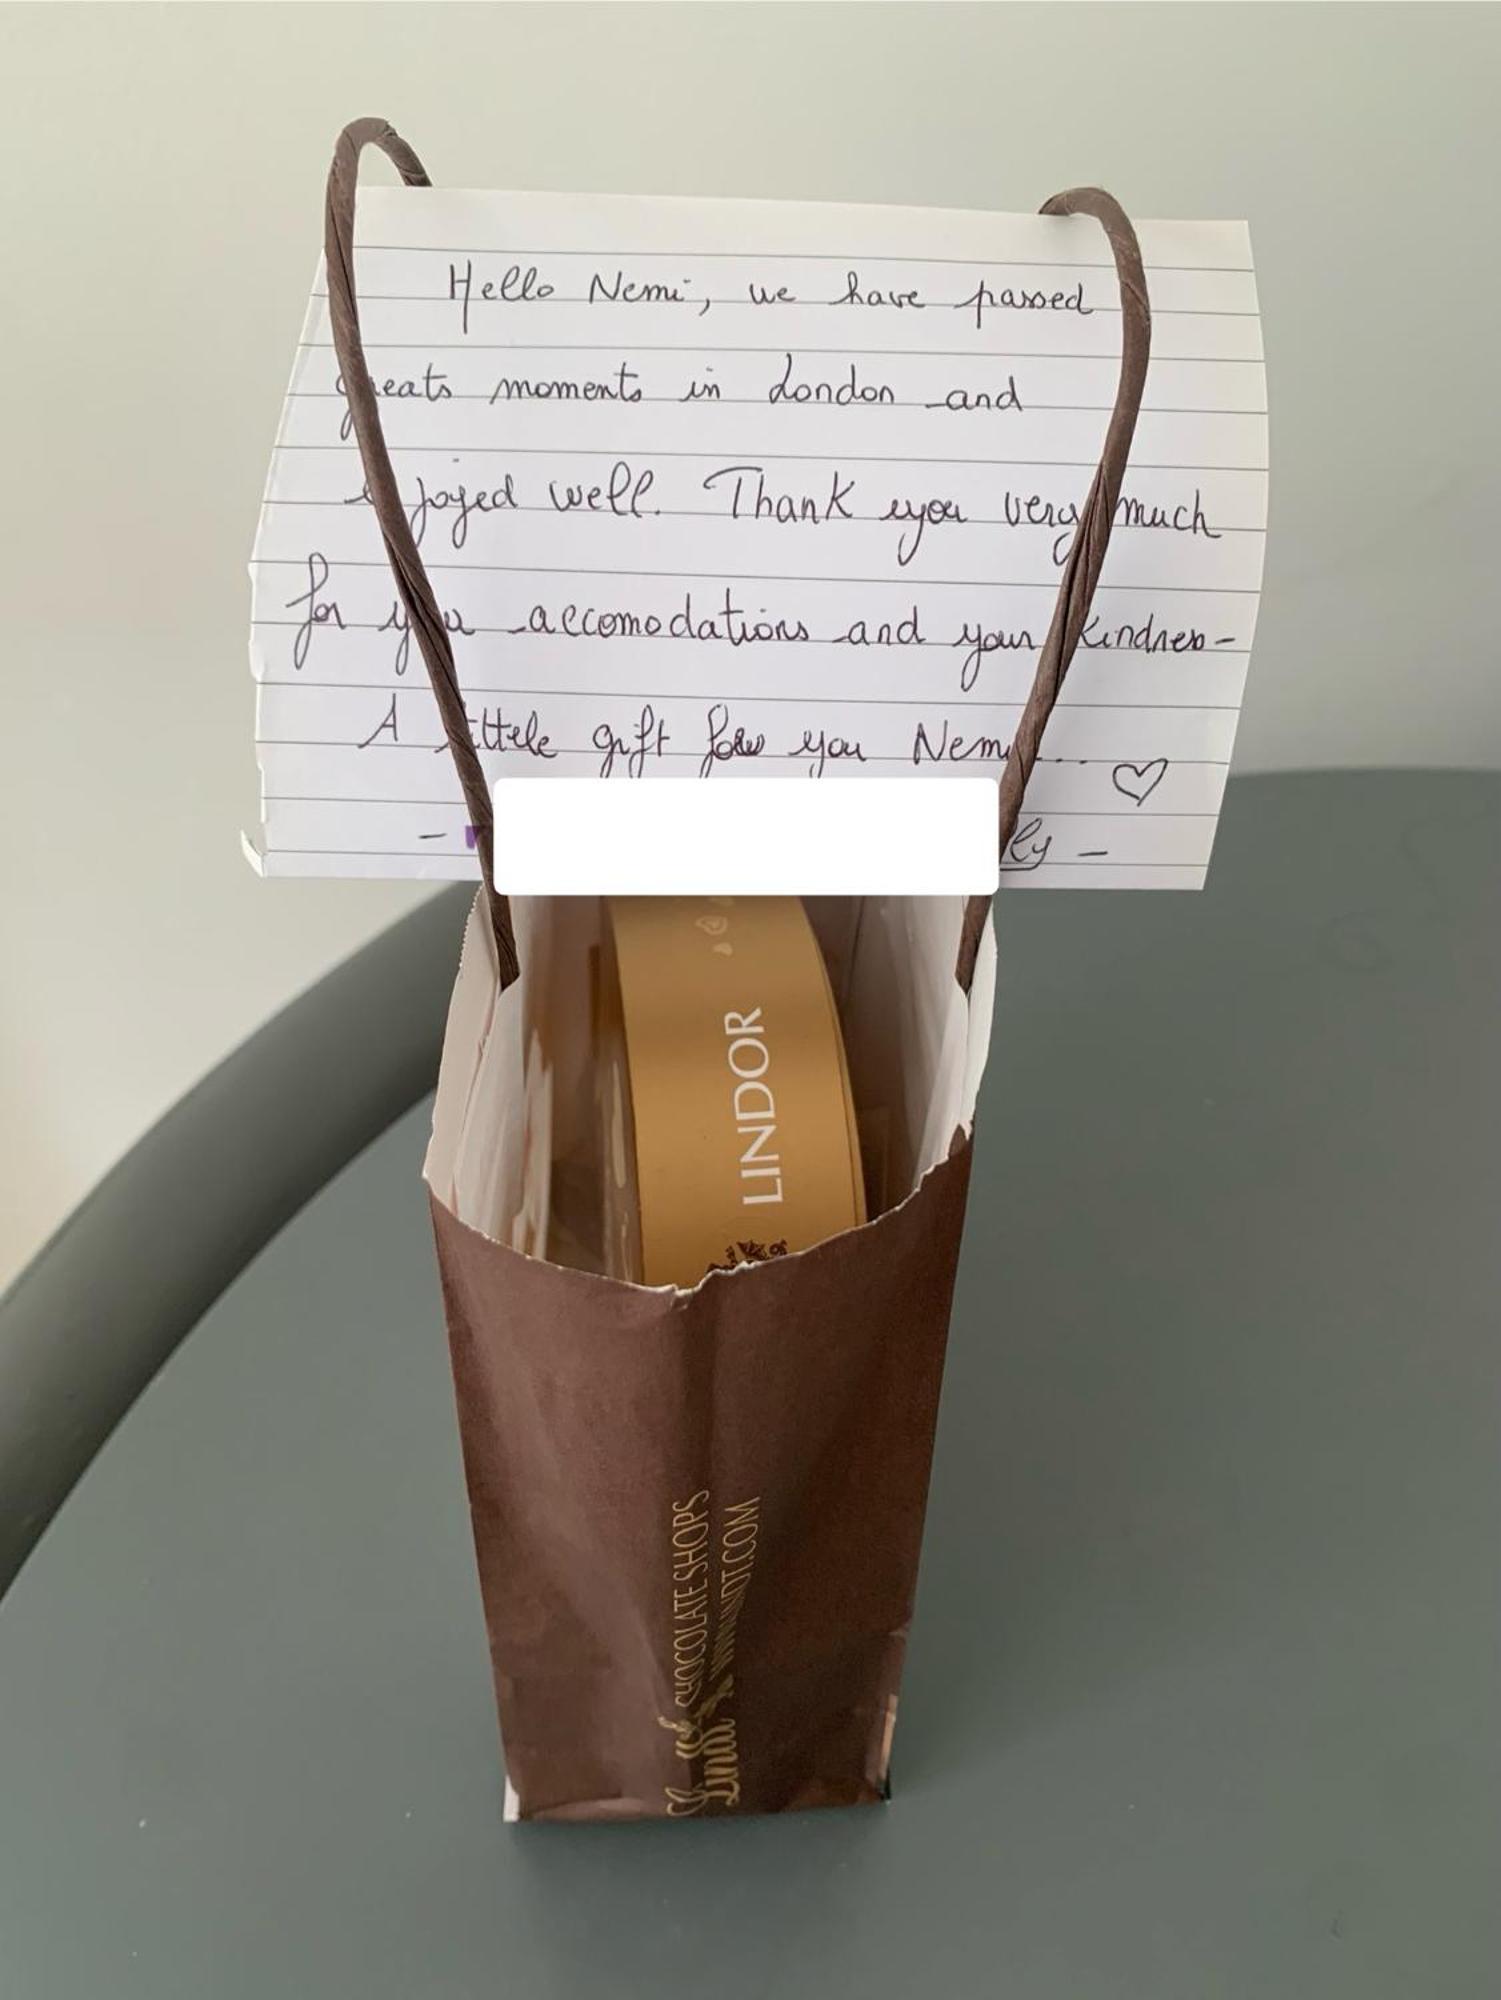 Hello Nemi, we have passed
greats moments in London and
enjoyed well. Thank you very much
for you accomodations and your kindness -
A little gift for you Nemi ... ♡
- ly -
LINDOR
Lindt CHOCOLATE SHOPS
WWW.LINDT.COM